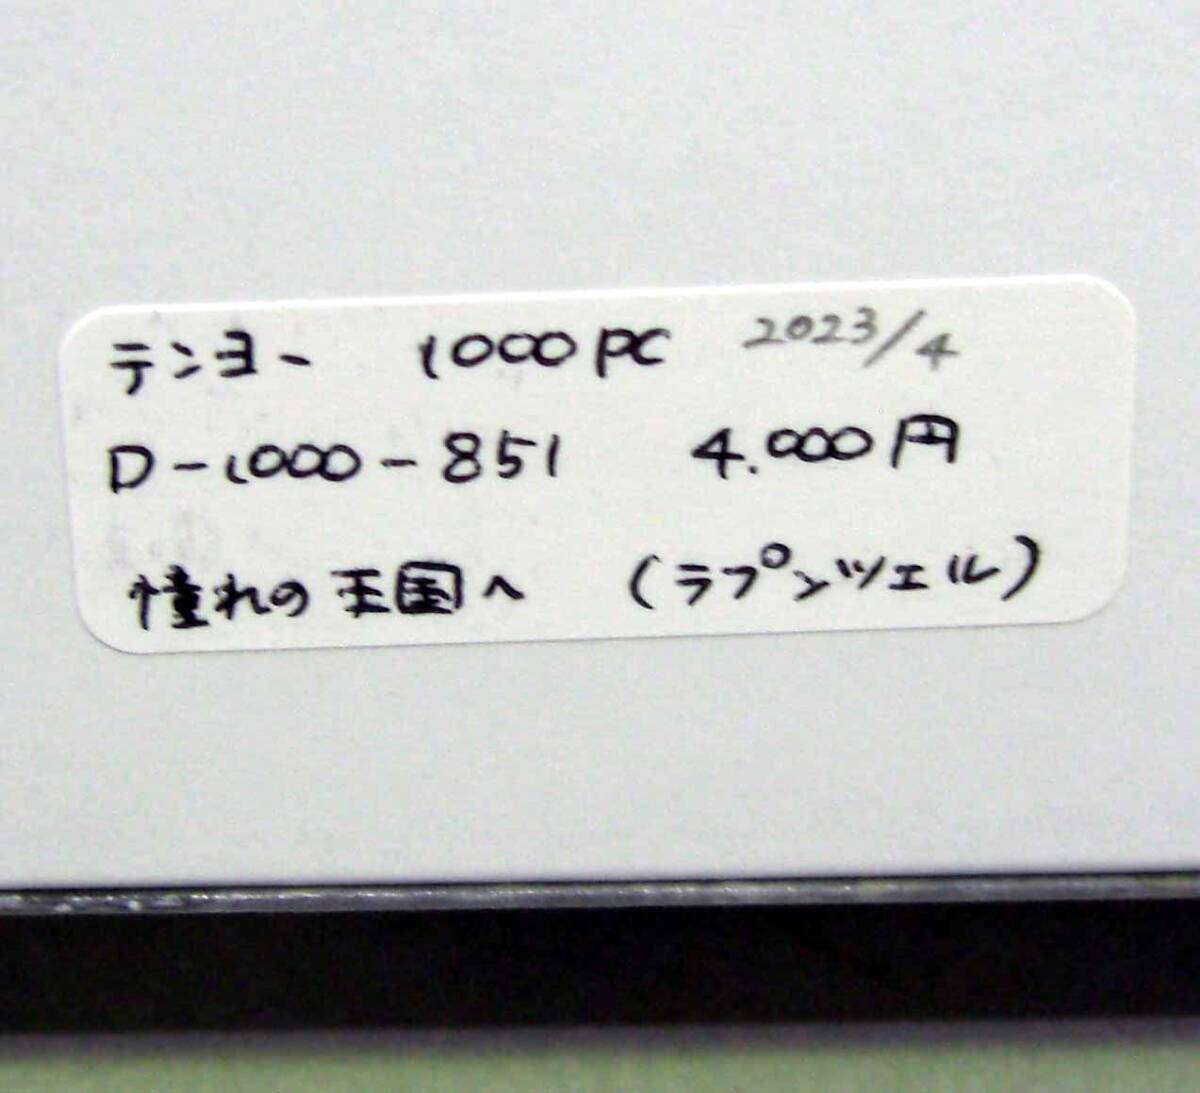 テンヨー 1000PC 2023/4
D-1000-851 4.000円
憧れの王国へ (ラプンツェル)